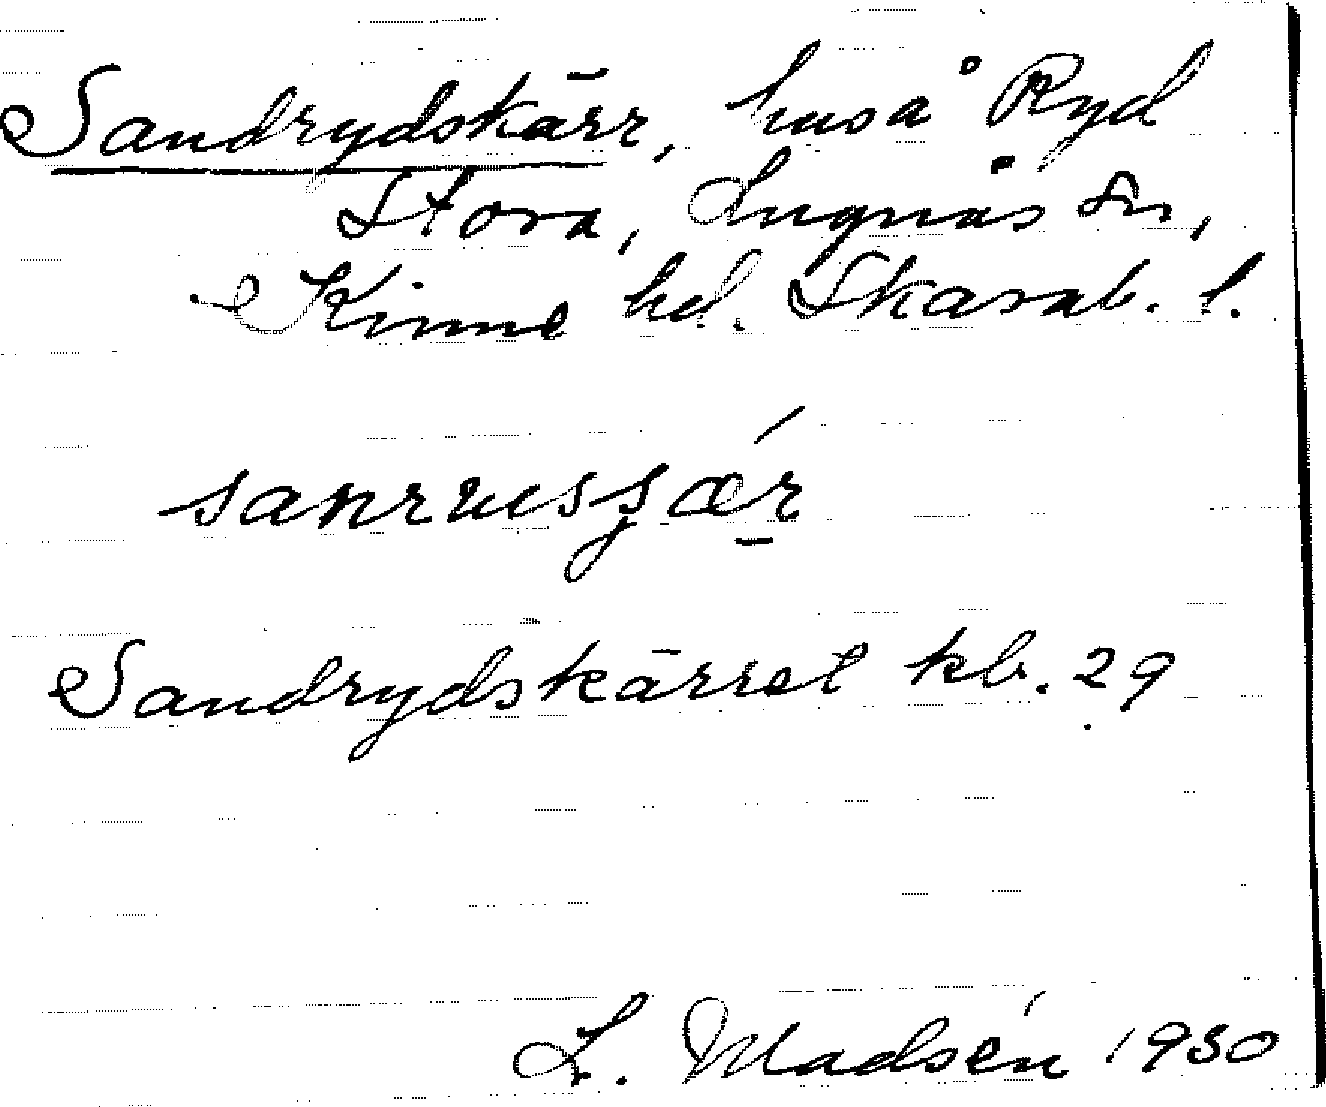 Sandrydskärr, hus å Ryd
Stora, Lugnås sn,
Kinne hd. Skarab. l.
Sandrydskärret kb. 29
L. Madsén 1930